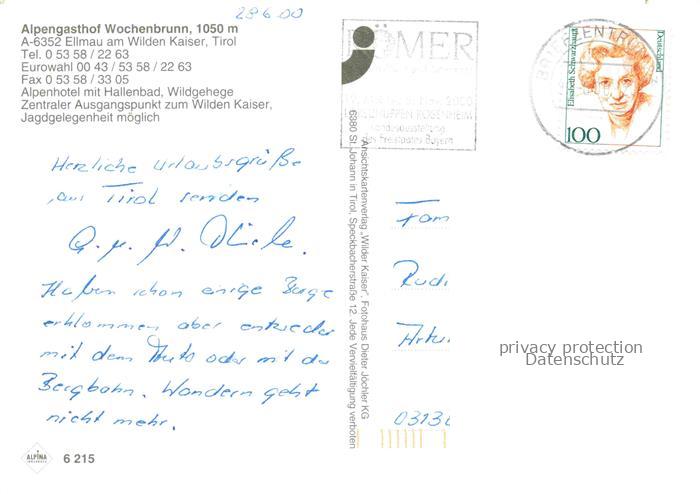 28.6.00
Alpengasthof Wochenbrunn, 1050 m
A-6352 Ellmau am Wilden Kaiser, Tirol
Tel. 0 53 58 / 22 63
Eurowahl 00 43 / 53 58 / 22 63
Fax 0 53 58 / 33 05
Alpenhotel mit Hallenbad, Wildgehege
Zentraler Ausgangspunkt zum Wilden Kaiser,
Jagdgelegenheit möglich
Herzliche Urlaubsgrüße
aus Tirol senden
Haben schon einige Berge
erklommen aber entweder
mit dem Auto oder mit der
Bergbahn. Wandern geht
nicht mehr.
ALPINA
6 215
Ansichtskartenverlag „Wilder Kaiser", Fotohaus Dieter Jöchler KG
6380 St. Johann in Tirol, Speckbacherstraße 12. Jede Vervielfältigung verboten
RÖMER
2000
ROSENHEIM
Landesausstellung
des Freistaates Bayern
BRIEFZENTRUM
Elisabeth Schwarzhaupt
Deutschland
100
Fam
Rudi
Artu
0313
privacy protection
Datenschutz